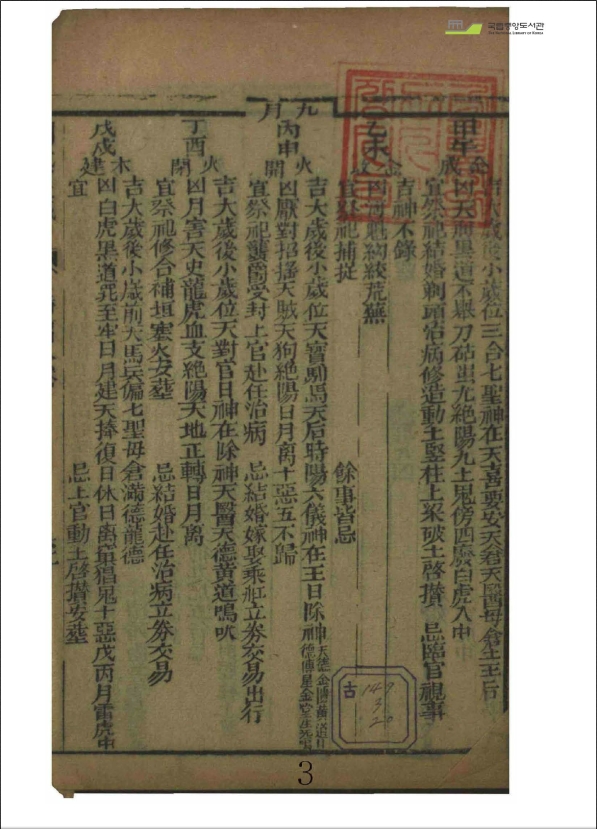 국립중앙도서관
THE NATIONAL LIBRARY OF KOREA
九月
甲午 金 成
吉大歲後小歲位三合七聖神在天喜要安天倉天醫母倉土王后
凶天 黑道不擧刀砧蚩尤絶陽九土鬼傍四廢白虎入中
宜祭祀結婚剃頭治病修造動土竪柱上梁破土啓攢 忌臨官視事
乙未 金 收
吉神不錄
凶河魁勾絞荒蕪
宜祭祀捕捉 餘事皆忌
丙申 火 開
吉大歲後小歲位天寶馹馬天后時陽六儀神在王日除神天德金匱黃道
凶厭對招搖天賊天狗絶陽日月离十惡五不歸
宜祭祀襲爵受封上官赴任治病 忌結婚嫁娶乘船立券交易出行
丁酉 火 閉
吉大歲後小歲位天對官日神在除神天醫天德黃道鳴吠
凶月害天史龍虎血支絶陽天地正轉日月离
宜祭祀修合補垣塞穴安葬 忌結婚赴任治病立券交易
戊戌 木 建
吉大歲後小歲前大馬兵偏七聖母倉滿德龍德
凶白虎黑道死至牢日月建天捧復日休日离窠猖鬼十惡戊丙月雷虎中
宜 忌上官動土啓攢安葬
古
149
3
20
3